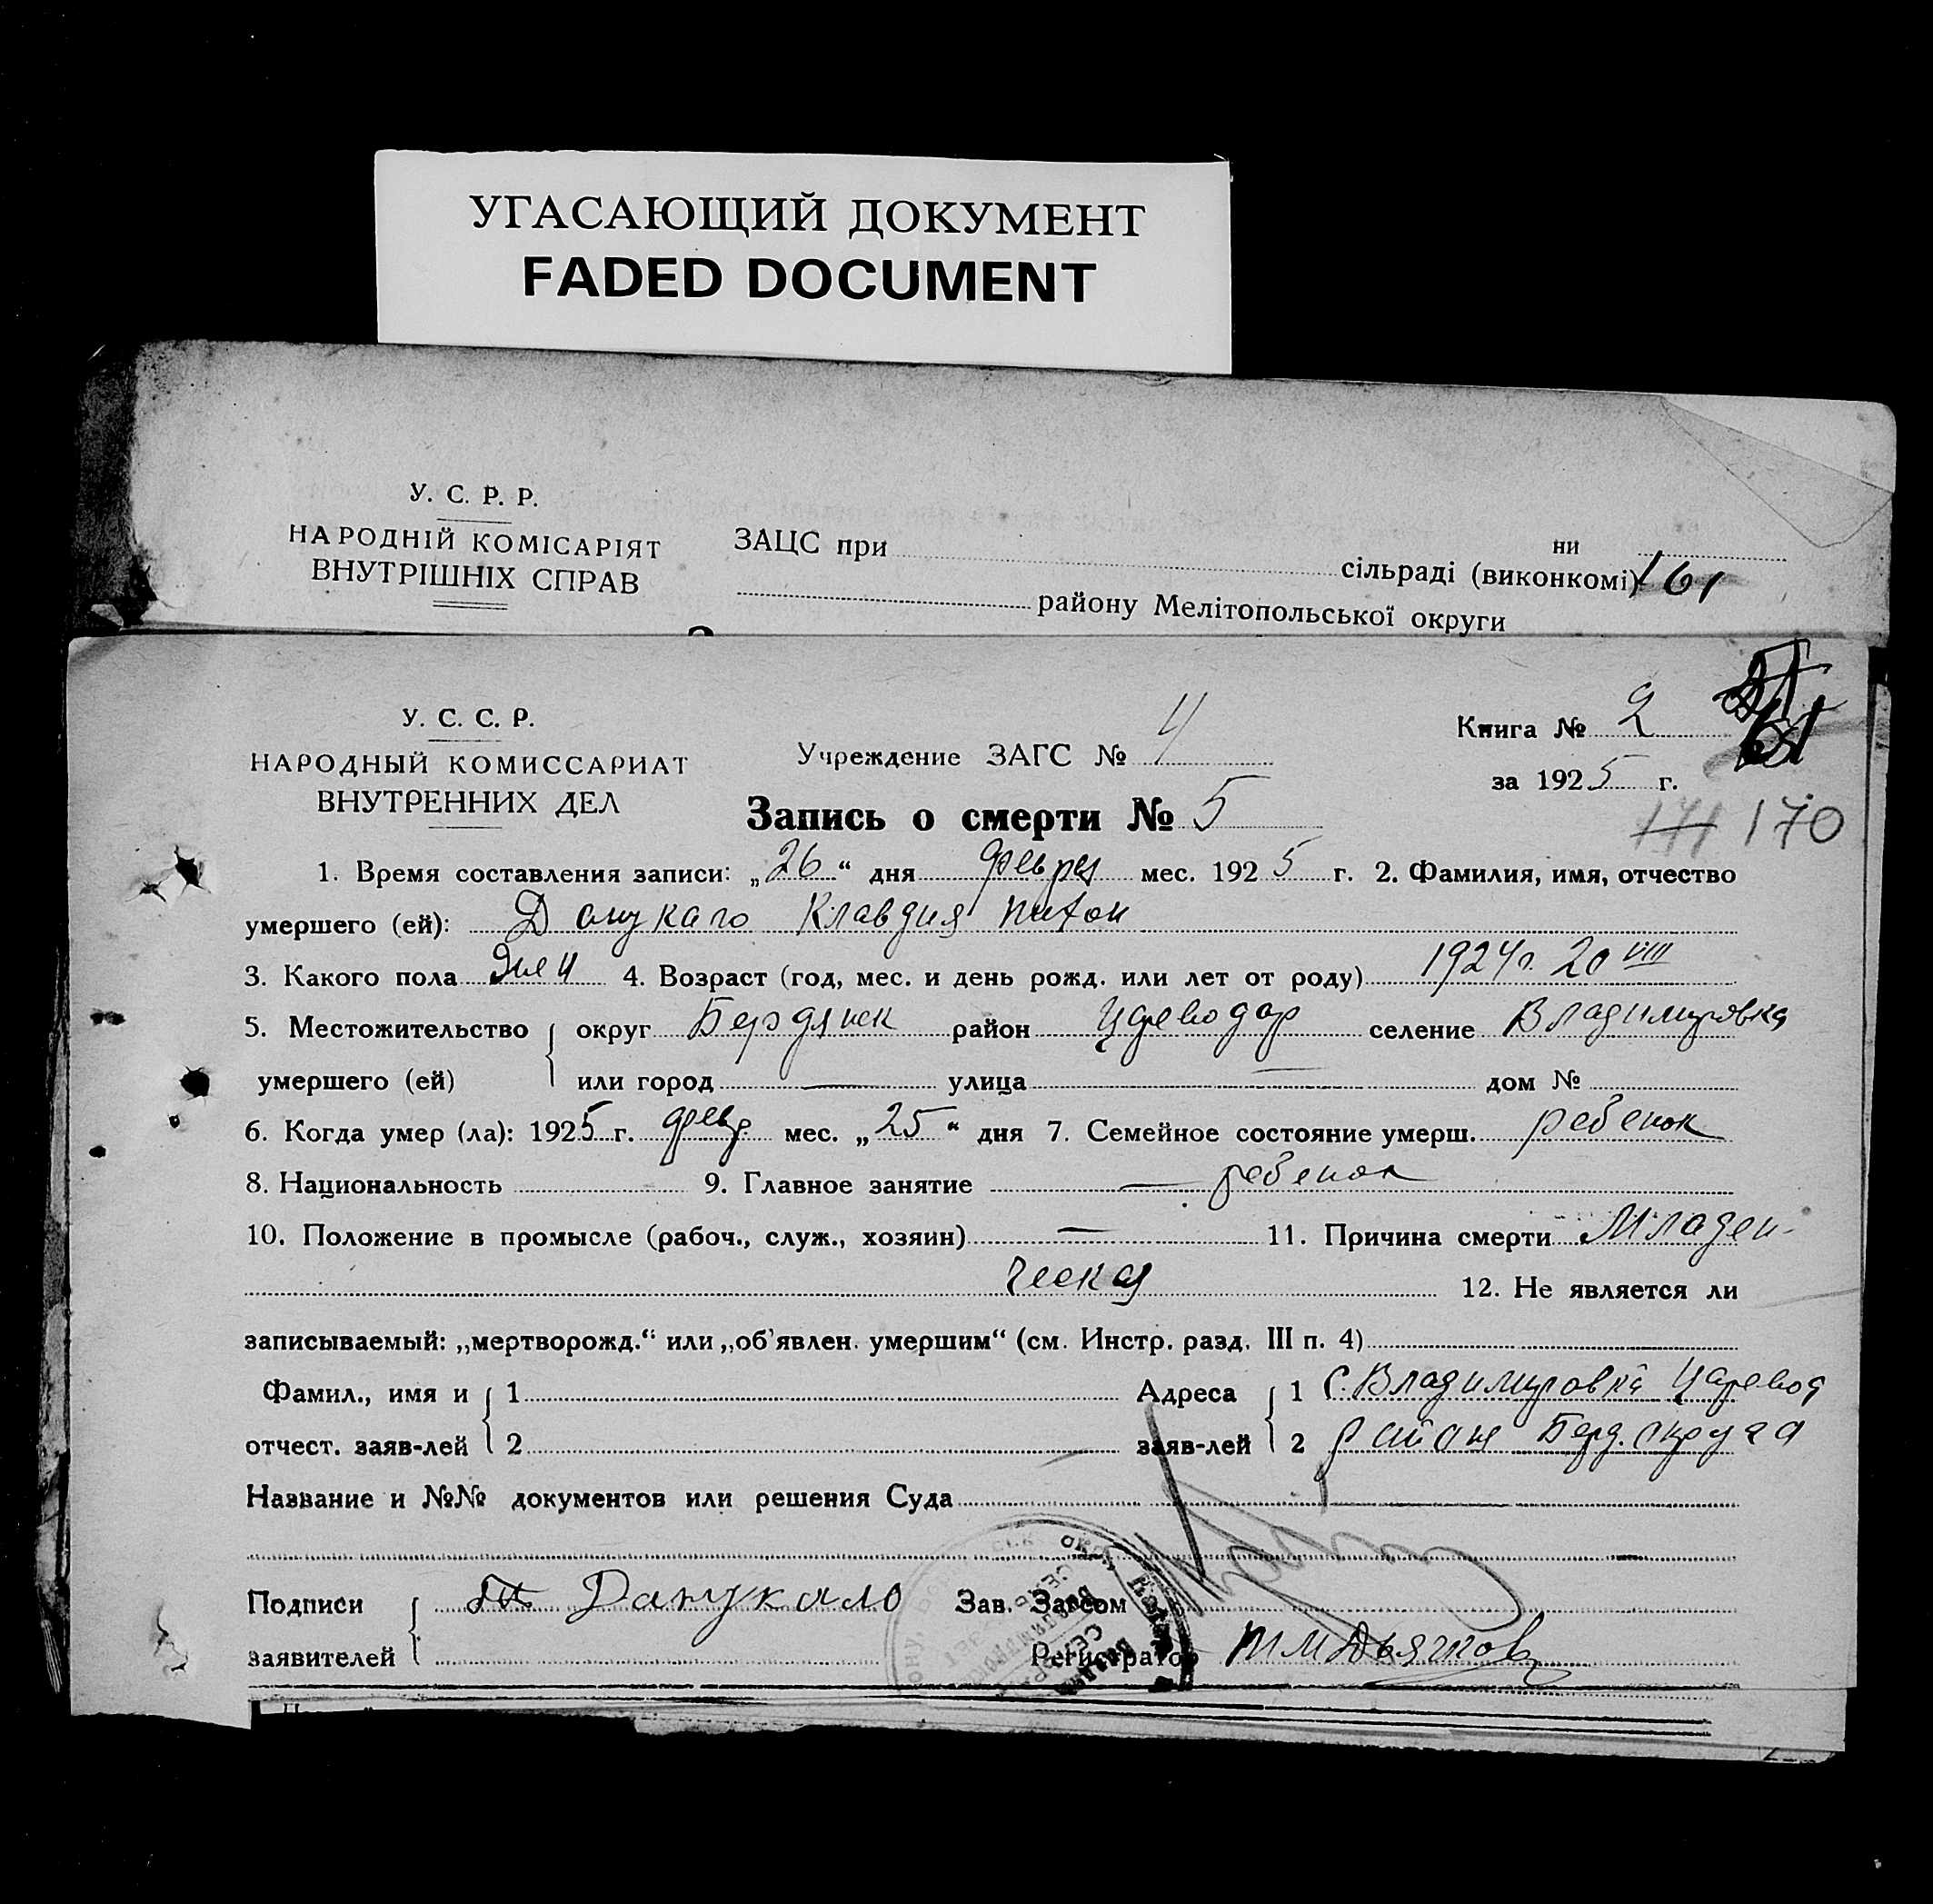 УГАСАЮЩИЙ ДОКУМЕНТ
FADED DOCUMENT
У. С. Р. Р.
НАРОДНІЙ КОМІСАРІЯТ
ВНУТРІШНІХ СПРАВ
ЗАЦС при ни
сільраді (виконкомі) 161
району Мелітопольської округи
У. С. С. Р.
НАРОДНЫЙ КОМИССАРИАТ
ВНУТРЕННИХ ДЕЛ
Учреждение ЗАГС № 4
Книга № 2
за 1925 г.
Запись о смерти № 5
171 170
1. Время составления записи: „26“ дня февря мес. 1925 г. 2. Фамилия, имя, отчество
умершего (ей): Клавдия
3. Какого пола жен 4. Возраст (год, мес. и день рожд. или лет от роду) 1924 г. 20 VIII
5. Местожительство округ Бердянск район Цареводар селение Владимировка
умершего (ей) или город — улица — дом №
6. Когда умер (ла): 1925 г. февр. мес. „25“ дня 7. Семейное состояние умерш. ребенок
8. Национальность 9. Главное занятие — ребенок
10. Положение в промысле (рабоч., служ., хозяин) — 11. Причина смерти Младен-
ческая 12. Не является ли
записываемый: „мертворожд.“ или „об’явлен. умершим“ (см. Инстр. разд. III п. 4)
Фамил., имя и 1 Адреса 1 С. Владимировка Царевод
отчест. заяв-лей 2 заяв-лей 2 района Берд. округа
Название и №№ документов или решения Суда
Подписи Данукало Зав. Загсом
заявителей Регистратор Дьячков